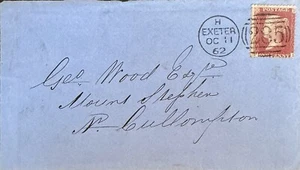 H
EXETER
OC 11
62
POSTAGE
285
Geo Wood Esqre
Mount Stephen
Nr Cullompton